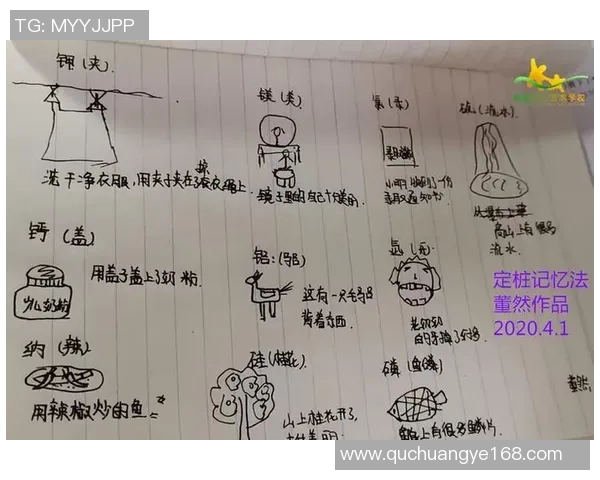 TG: MYYJJPP
钾(夹)
洗干净衣服,用夹子夹在了晾衣绳上
镁(美)
镜子里的自己十分美丽.
氯(录)
录取通知书
小明收到了一份
录取通知书
硫(流水)
高山上有
流水
钙(盖)
少儿奶粉
用盖子盖上了奶粉
铝:(驴)
这有一只毛驴
背着东西
老奶奶
的牙掉了
定桩记忆法
董然作品
2020.4.1
纳(辣)
用辣椒炒的鱼
硅(桂花)
山上桂花开了,
磷(鱼鳞)
鱼身上有很多鳞片.
董然
www.quchuangye168.com